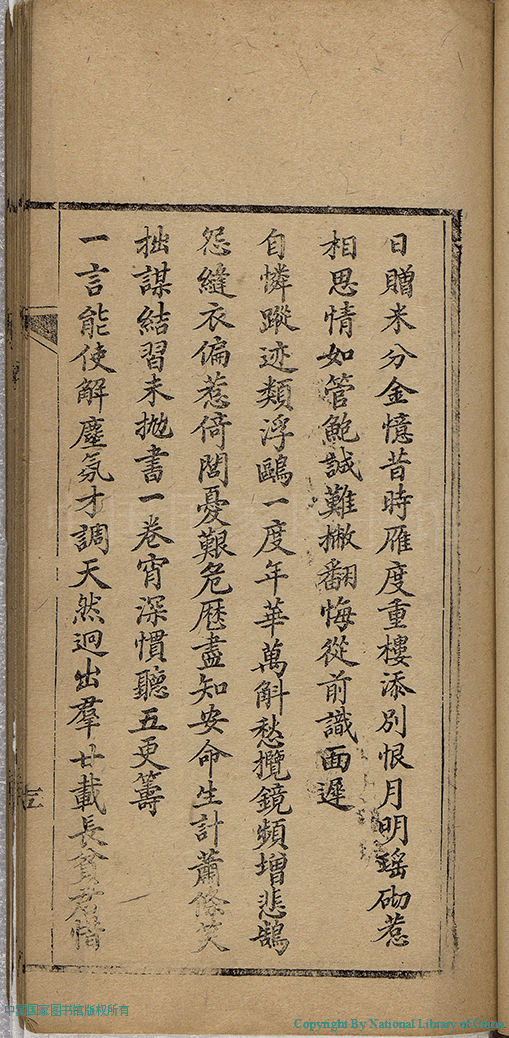 日贈米分金憶昔時雁度重樓添別恨月明瑤砌惹
相思情如管鮑誠難撇翻悔從前識面遲
自憐蹤迹類浮鷗一度年華萬斛愁攬鏡頻增悲鵠
怨縫衣偏惹倚閭憂艱危歷盡知安命生計蕭條笑
拙謀結習未拋書一卷宵深慣聽五更籌
一言能使解塵氛才調天然迥出羣廿載長貧君惜
中国国家图书馆版权所有
Copyright By National Library of China